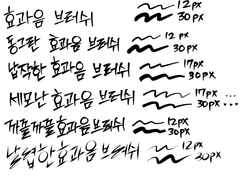 효과음 브러쉬 12px 30px
동그란 효과음 브러쉬 12px 30px
납작한 효과음 브러쉬 17px 30px
세모난 효과음 브러쉬 17px ... 30px ...
까끌까끌효과음브러쉬 12px 30px
날렵한효과음브러쉬 12px 30px